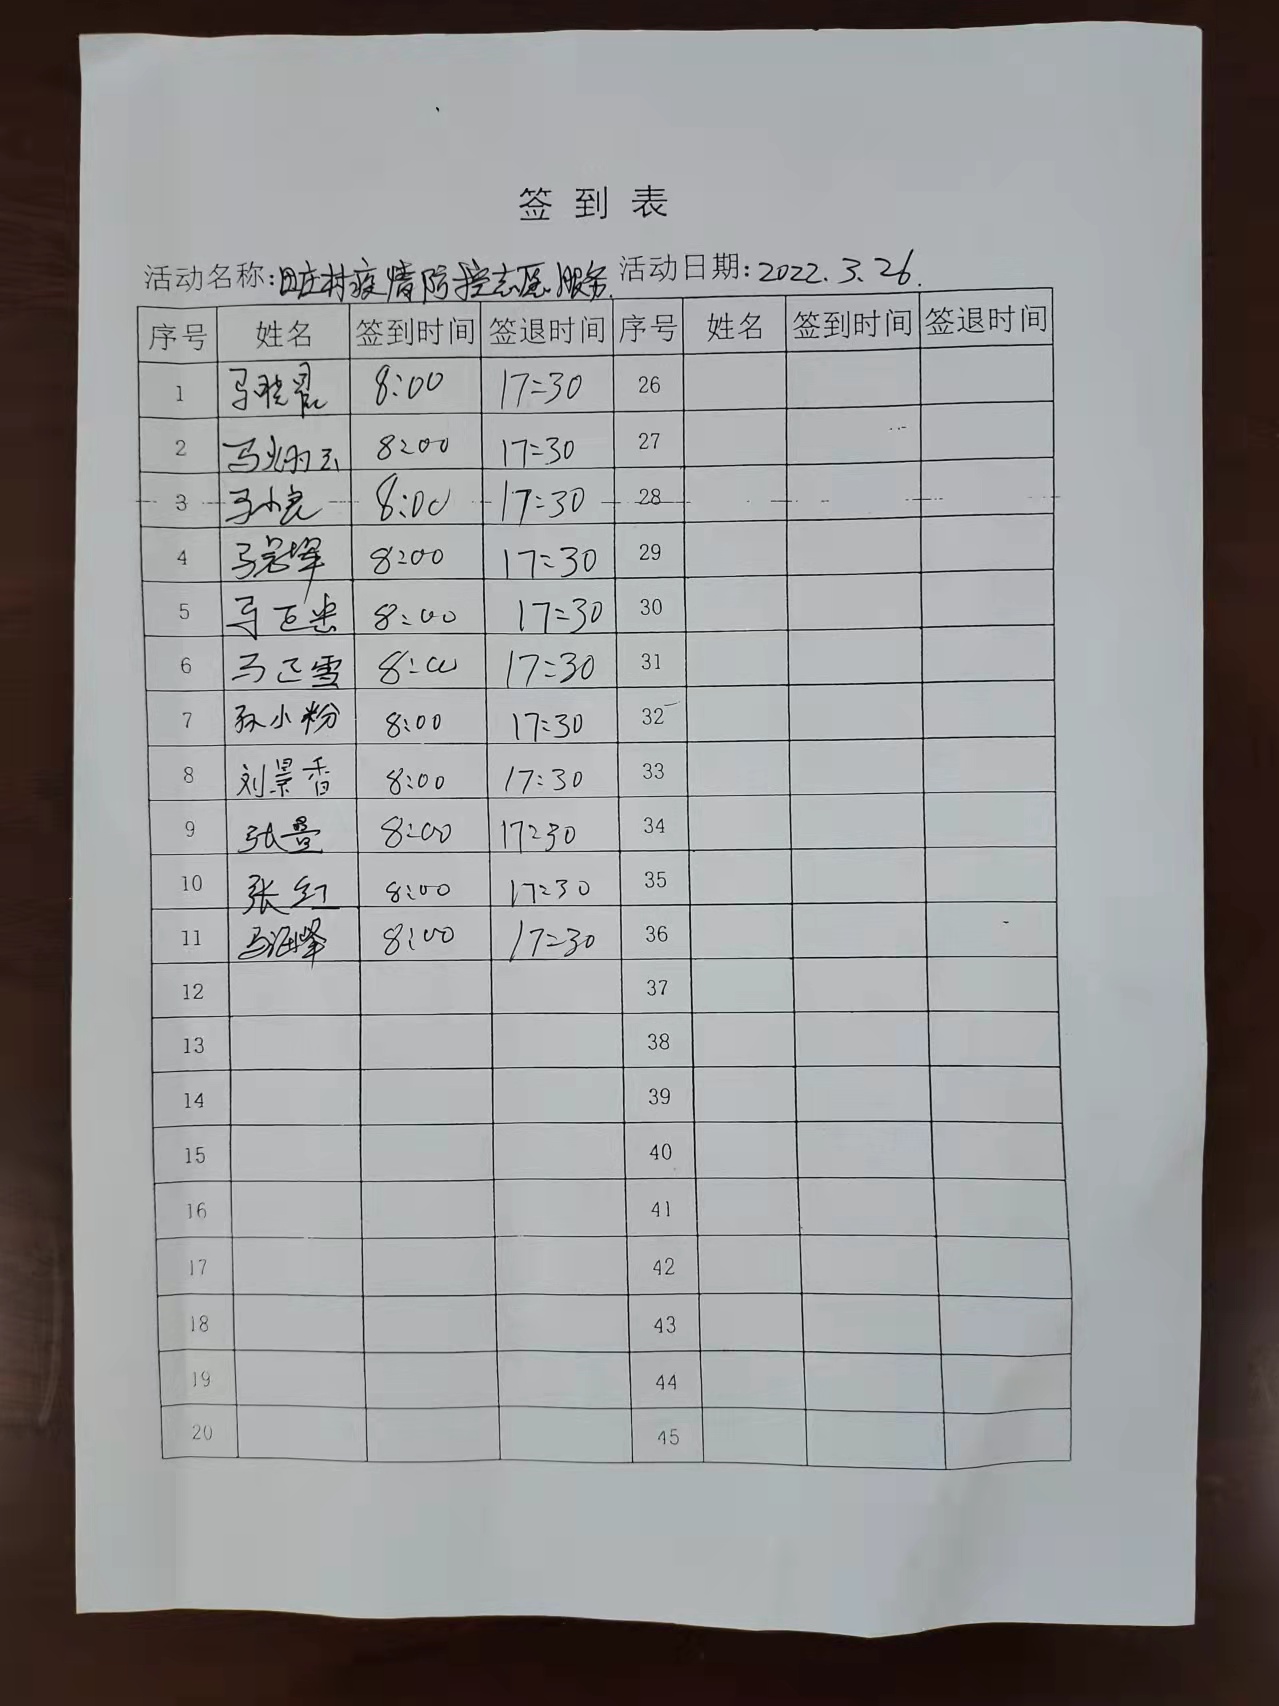 签到表
活动名称:田庄村疫情防控志愿服务 活动日期:2022.3.26.
序号 姓名 签到时间 签退时间 序号 姓名 签到时间 签退时间
1 马晓 8:00 17:30 26
2 马 8:00 17:30 27
3 马小良 8:00 17:30 28
4 马 8:00 17:30 29
5 马 8:00 17:30 30
6 马 雪 8:00 17:30 31
7 孙小粉 8:00 17:30 32
8 刘景香 8:00 17:30 33
9 张曼 8:00 17:30 34
10 张红 8:00 17:30 35
11 马海峰 8:00 17:30 36
12 37
13 38
14 39
15 40
16 41
17 42
18 43
19 44
20 45